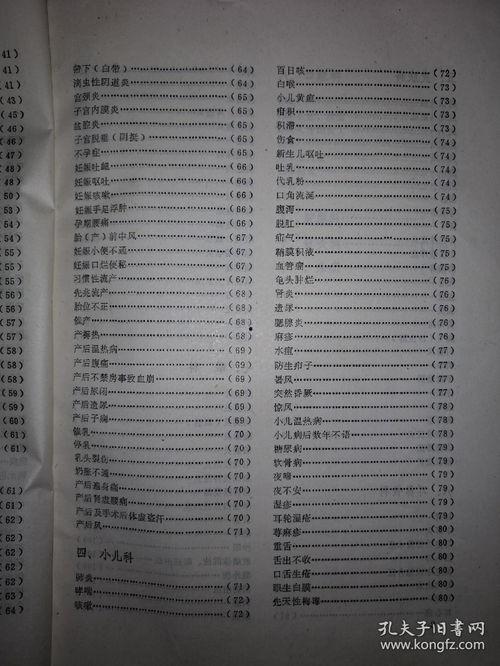 41)
(41)
(43)
(45)
(46)
(46)
(47)
(48)
(50)
(53)
(54)
(54)
(55)
(55)
(56)
(57)
(57)
(58)
(58)
(59)
(59)
(60)
(60)
(61)
(61)
(61)
(62)
(62)
(62)
(63)
(63)
(64)
带下(白带)(64)
滴虫性阴道炎(64)
宫颈炎(65)
子宫内膜炎(65)
盆腔炎(65)
子宫脱垂(阴挺)(65)
不孕症(65)
妊娠吐衄(66)
妊娠呕吐(66)
妊娠咳嗽(66)
妊娠手足浮肿(66)
孕期腰痛(66)
胎(产)前中风(67)
妊娠小便不通(67)
妊娠口烂便秘(67)
习惯性流产(67)
先兆流产(68)
胎位不正(68)
催产(68)
产褥热(68)
产后温热病(69)
产后腹痛(69)
产后不禁房事致血崩(69)
产后尿闭(69)
产后遗尿(69)
产后子痫(69)
催乳(70)
停乳(70)
乳头裂伤(70)
奶胀不通(70)
产后遍身痛(70)
产后肾虚腰痛(70)
产后及手术后体虚盗汗(71)
产后风(71)
四、小儿科
肺炎(71)
哮喘(72)
咳嗽(72)
百日咳(72)
白喉(73)
小儿黄疸(73)
疳积(73)
积滞(74)
伤食(74)
新生儿呕吐(74)
吐乳(74)
代乳粉(74)
口角流涎(74)
腹泻(75)
脱肛(75)
疝气(75)
鞘膜积液(75)
血管瘤(75)
龟头肿烂(76)
肾炎(76)
遗尿(76)
腮腺炎(76)
麻疹(76)
水痘(77)
防生疖子(77)
暑风(77)
突然昏厥(77)
惊风(78)
小儿温热病(78)
小儿病后数年不语(78)
糖尿病(79)
软骨病(79)
夜啼(79)
夜不安(79)
湿疹(79)
耳轮湿疮(80)
荨麻疹(80)
重舌(80)
舌出不收(80)
口舌生疮(80)
眼生白膜(80)
先天性梅毒(80)
孔夫子旧书网
www.kongfz.com